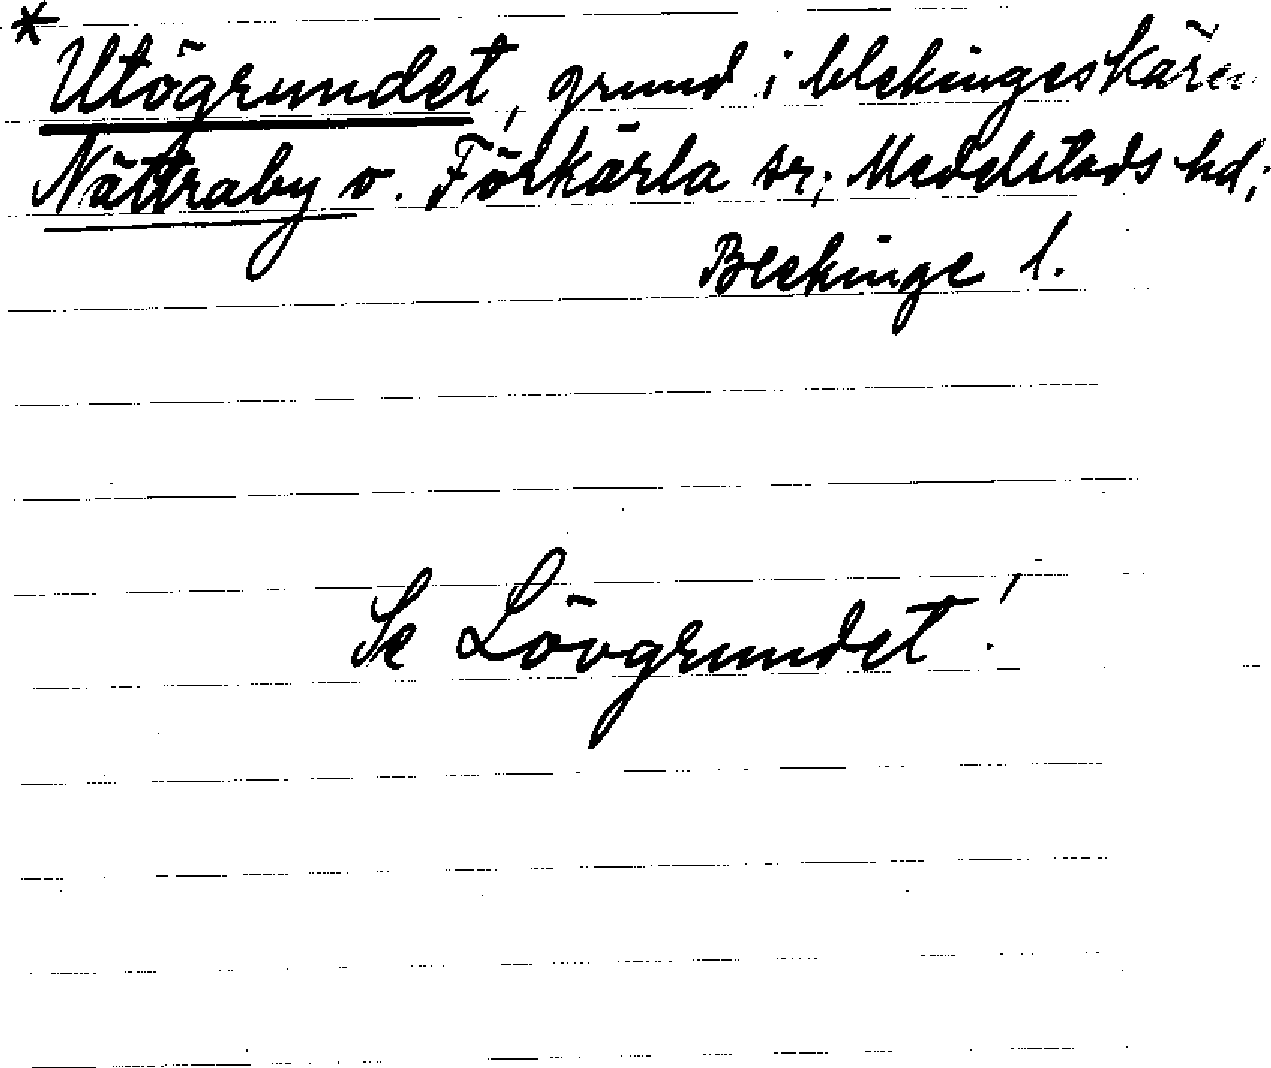 * Utögrundet, grund i blekingeskären
Nättraby o. Förkärla sr; Medelstads hd;
Blekinge l.
Se Lövgrundet!